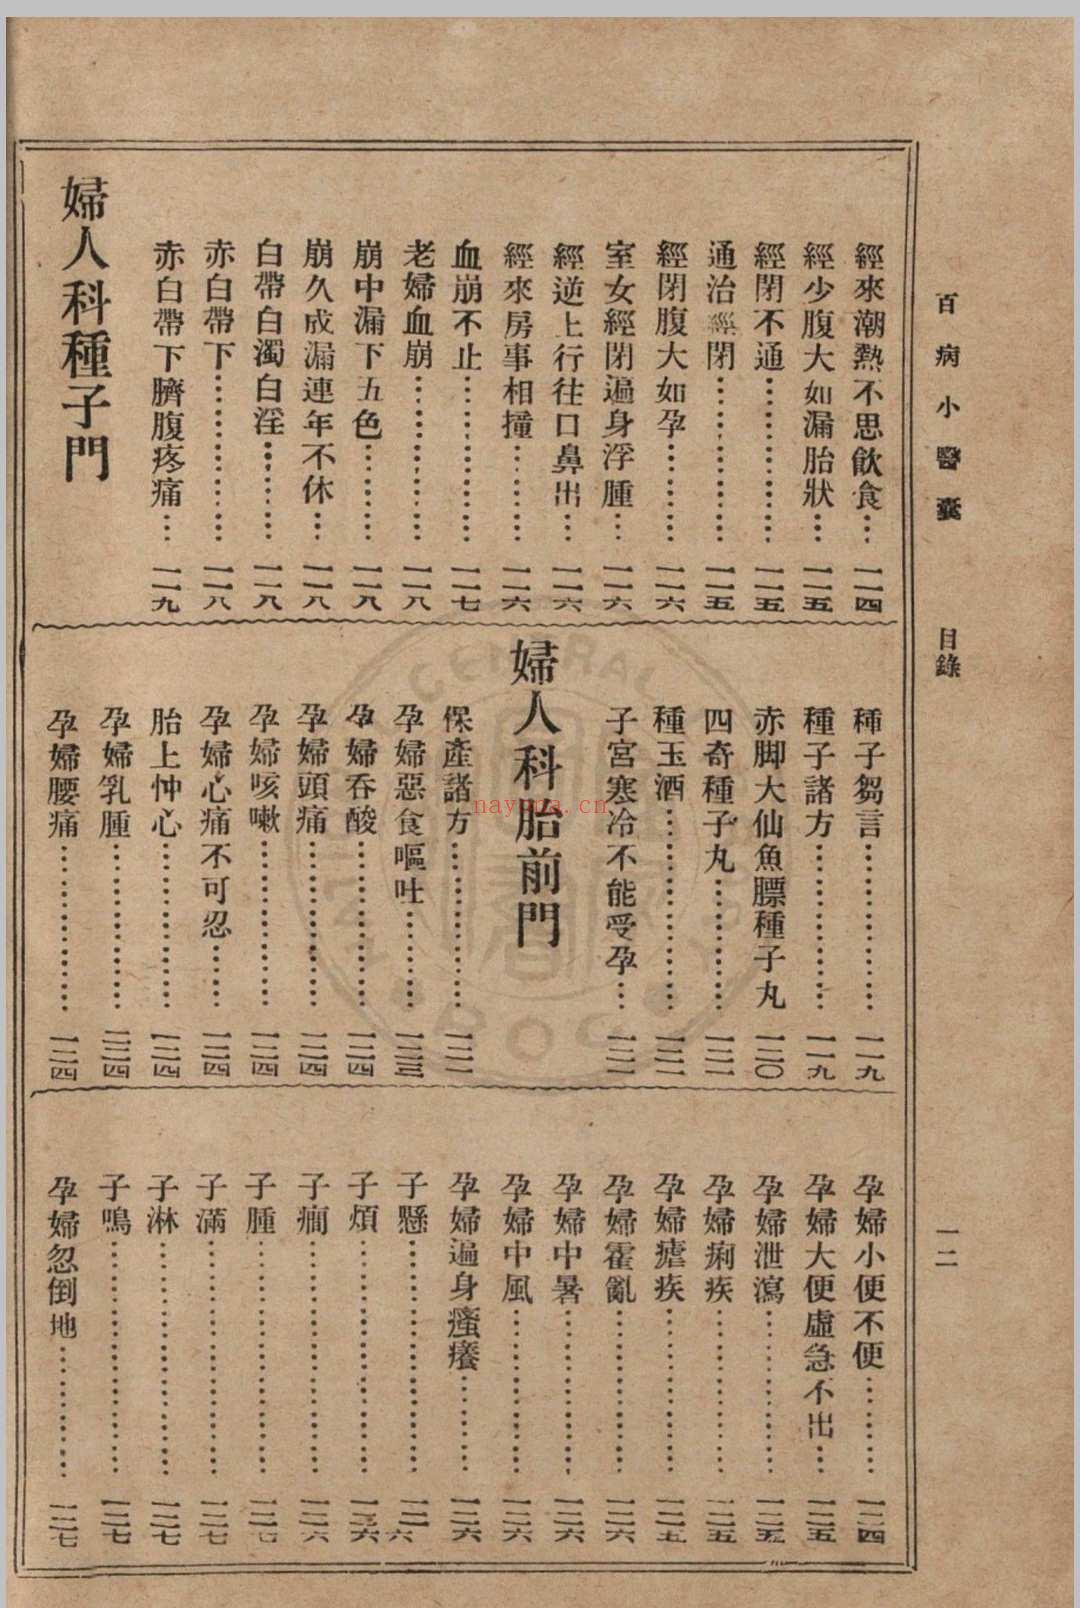 百病小醫囊　目錄　一二
經來潮熱不思飲食…一一四
經少腹大如漏胎狀…一一五
經閉不通…………一一五
通治經閉…………一一五
經閉腹大如孕………一一六
室女經閉遍身浮腫…一一六
經逆上行往口鼻出…一一六
經來房事相撞………一一六
血崩不止…………一一七
老婦血崩…………一一八
崩中漏下五色………一一八
崩久成漏連年不休…一一八
白帶白濁白淫………一一八
赤白帶下…………一一八
赤白帶下臍腹疼痛…一一九
婦人科種子門
種子芻言…………一一九
種子諸方…………一一九
赤脚大仙魚膘種子丸一二〇
四奇種子丸………一二一
種玉酒……………一二一
子宮寒冷不能受孕…一二一
婦人科胎前門
保產諸方…………一二一
孕婦惡食嘔吐………一二三
孕婦吞酸…………一二四
孕婦頭痛…………一二四
孕婦咳嗽…………一二四
孕婦心痛不可忍……一二四
胎上忡心…………一二四
孕婦乳腫…………一二四
孕婦腰痛…………一二四
孕婦小便不便………一二四
孕婦大便虛急不出…一二五
孕婦泄瀉…………一二五
孕婦痢疾…………一二五
孕婦瘧疾…………一二五
孕婦霍亂…………一二六
孕婦中暑…………一二六
孕婦中風…………一二六
孕婦遍身瘙癢………一二六
子懸………………一二六
子煩………………一二六
子癇………………一二六
子腫………………一二七
子滿………………一二七
子淋………………一二七
子鳴………………一二七
孕婦忽倒地………一二七
nayona.cn